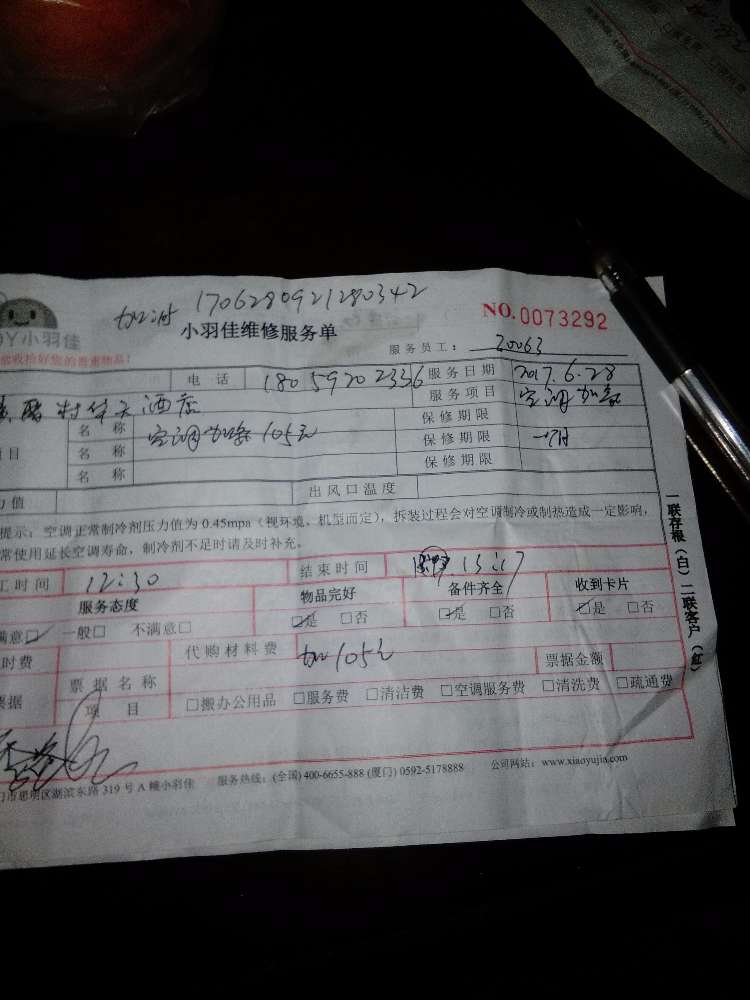 1706280921280342
小羽佳维修服务单
NO.0073292
Y小羽佳
服务员工： 20063
收拾好您的贵重物品！
电 话 18059202336 服务日期 2017.6.28
服务项目 空调加氟
酒店
项目 名 称 空调加氟105元 保修期限
名 称 保修期限 一个月
名 称 保修期限
力值 出风口温度
提示：空调正常制冷剂压力值为 0.45mpa（视环境、机型而定），拆装过程会对空调制冷或制热造成一定影响，
常使用延长空调寿命，制冷剂不足时请及时补充。
工时间 12:30 结束时间 13:17
服务态度 物品完好 备件齐全 收到卡片
满意□ 一般□ 不满意□ □是 □否 □是 □否 □是 □否
时费 代购材料费 加105元 票据金额
票据 票据名称
项 目 □搬办公用品 □服务费 □清洁费 □空调服务费 □清洗费 □疏通费
一联存根（白）二联客户（红）
门市思明区湖滨东路 319 号 A 幢小羽佳 服务热线：(全国) 400-6655-888 (厦门) 0592-5178888 公司网站：www.xiaoyujia.com